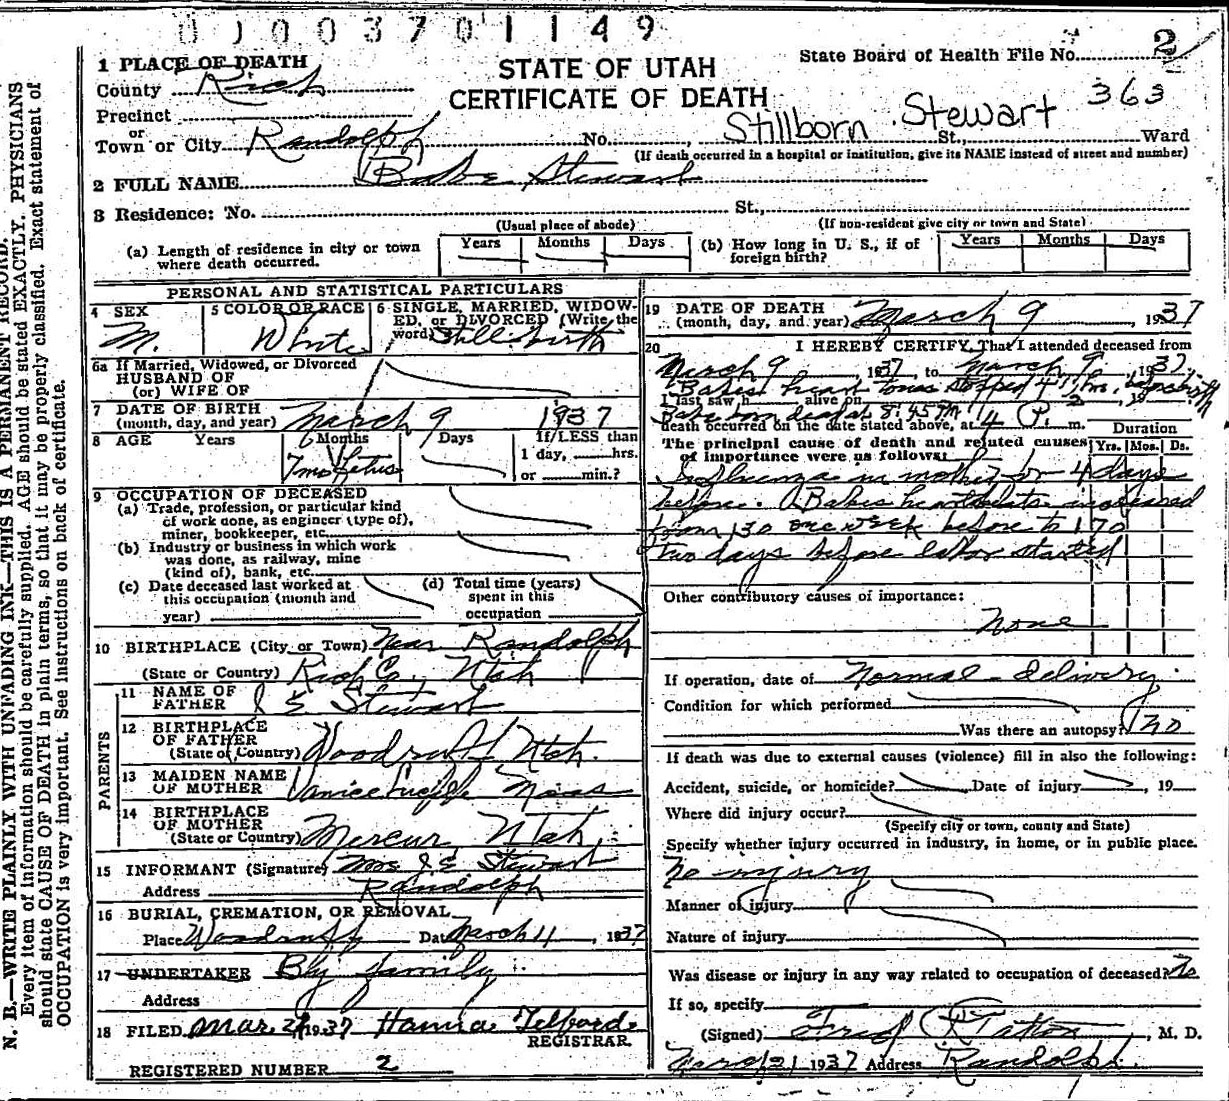 0 0 0 3 7 0 1 1 4 9
State Board of Health File No. 2
1 PLACE OF DEATH
County Rich
STATE OF UTAH
CERTIFICATE OF DEATH
363
Precinct
or
Town or City Randolph No. , Stillborn Stewart St., Ward
(If death occurred in a hospital or institution, give its NAME instead of street and number)
2 FULL NAME Babe Stewart
3 Residence: No. St.,
(Usual place of abode) (If non-resident give city or town and State)
(a) Length of residence in city or town where death occurred. Years Months Days (b) How long in U. S., if of foreign birth? Years Months Days
PERSONAL AND STATISTICAL PARTICULARS
4 SEX M.
5 COLOR OR RACE White
6 SINGLE, MARRIED, WIDOWED, or DIVORCED (Write the word) Still birth
6a If Married, Widowed, or Divorced
HUSBAND OF
(or) WIFE OF
7 DATE OF BIRTH
(month, day, and year) March 9 1937
8 AGE Years Months Days If LESS than
7 mo fetus 1 day, hrs.
or min.?
9 OCCUPATION OF DECEASED
(a) Trade, profession, or particular kind
of work done, as engineer (type of),
miner, bookkeeper, etc.
(b) Industry or business in which work
was done, as railway, mine
(kind of), bank, etc.
(c) Date deceased last worked at
this occupation (month and
year)
(d) Total time (years)
spent in this
occupation
10 BIRTHPLACE (City or Town) Near Randolph
(State or Country) Rich Co., Utah
PARENTS
11 NAME OF
FATHER J E Stewart
12 BIRTHPLACE
OF FATHER
(State or Country) Woodruff Utah.
13 MAIDEN NAME
OF MOTHER
14 BIRTHPLACE
OF MOTHER
(State or Country) Mercur Utah
15 INFORMANT (Signature) Mrs J. E Stewart
Address Randolph
16 BURIAL, CREMATION, OR REMOVAL
Place Woodruff Date March 11, 1937
17 UNDERTAKER By family
Address
18 FILED Mar. 1937 Hanna Telford
REGISTRAR.
REGISTERED NUMBER 2
19 DATE OF DEATH
(month, day, and year) March 9, 1937
20 I HEREBY CERTIFY, That I attended deceased from
March 9, 1937, to March 9, 1937.
Babies heart tones stopped
I last saw h alive on , 19
Babe born dead at 8:45 PM
death occurred on the date stated above, at 4 P. m.
Duration
The principal cause of death and related causes
of importance were as follows:
Yrs. Mos. Ds.
Influenza in mother for 4 days
before. Babies heartbeats increased
from 130 one week before to 170
two days before labor started
Other contributory causes of importance:
None
If operation, date of Normal delivery.
Condition for which performed
Was there an autopsy? no
If death was due to external causes (violence) fill in also the following:
Accident, suicide, or homicide? Date of injury , 19
Where did injury occur?
(Specify city or town, county and State)
Specify whether injury occurred in industry, in home, or in public place.
No injury
Manner of injury
Nature of injury
Was disease or injury in any way related to occupation of deceased? No
If so, specify
(Signed) , M. D.
March 21 1937 Address Randolph.
N. B.—WRITE PLAINLY WITH UNFADING INK—THIS IS A PERMANENT RECORD.
Every item of information should be carefully supplied. AGE should be stated EXACTLY. PHYSICIANS
should state CAUSE OF DEATH in plain terms, so that it may be properly classified. Exact statement of
OCCUPATION is very important. See instructions on back of certificate.